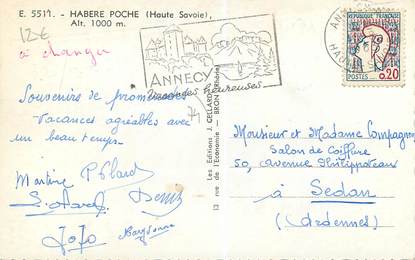 E. 5511. - HABERE POCHE (Haute Savoie),
Alt. 1000 m.
12€
à changer
ANNECY
Vacances heureuses
ANN
HAU
REPUBLIQUE FRANÇAISE
POSTES 0,20
Souvenirs de promenades
Vacances agréables avec
un beau temps.
Martine
Denis
JoJo
Les Editions J. CELLARD
12 rue de l'Economie - BRON (Rhône)
Monsieur et Madame Compagnon
Salon de Coiffure
50, avenue Philippoteaux
à Sedan
(Ardennes)